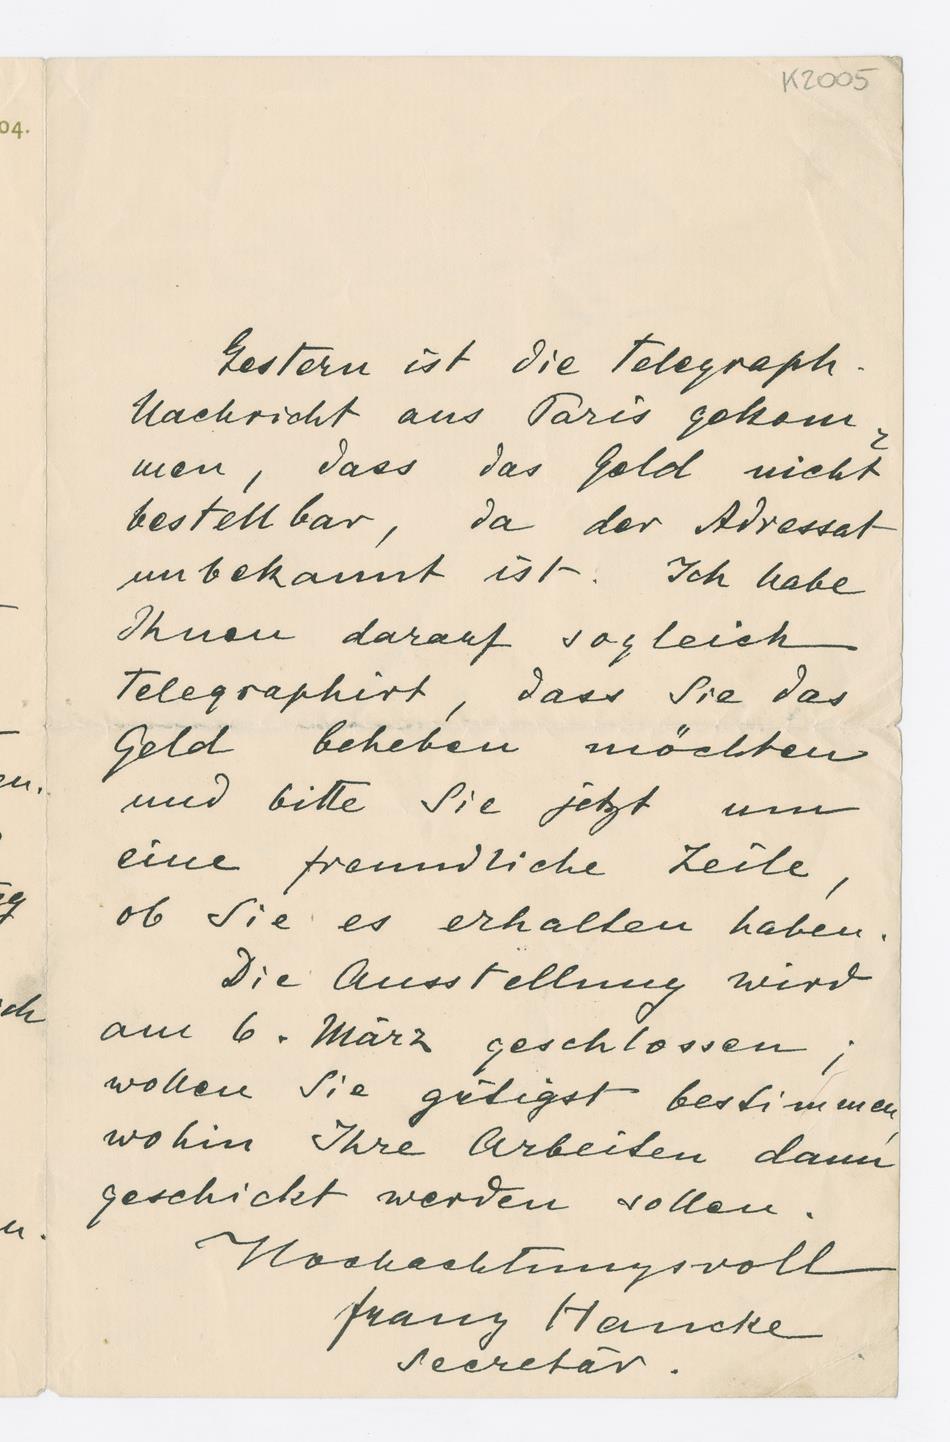 K2005
04.
Gestern ist die telegraph.
Nachricht aus Paris gekom-
men, dass das Geld nicht
bestellbar, da der Adressat
unbekannt ist. Ich habe
Ihnen darauf sogleich
telegraphirt, dass Sie das
Geld beheben möchten
und bitte Sie jetzt um
eine freundliche Zeile,
ob Sie es erhalten haben.
Die Ausstellung wird
am 6. März geschlossen;
wollen Sie gütigst bestimmen,
wohin Ihre Arbeiten dann
geschickt werden sollen.
Hochachtungsvoll
Franz Hancke
Secretär.